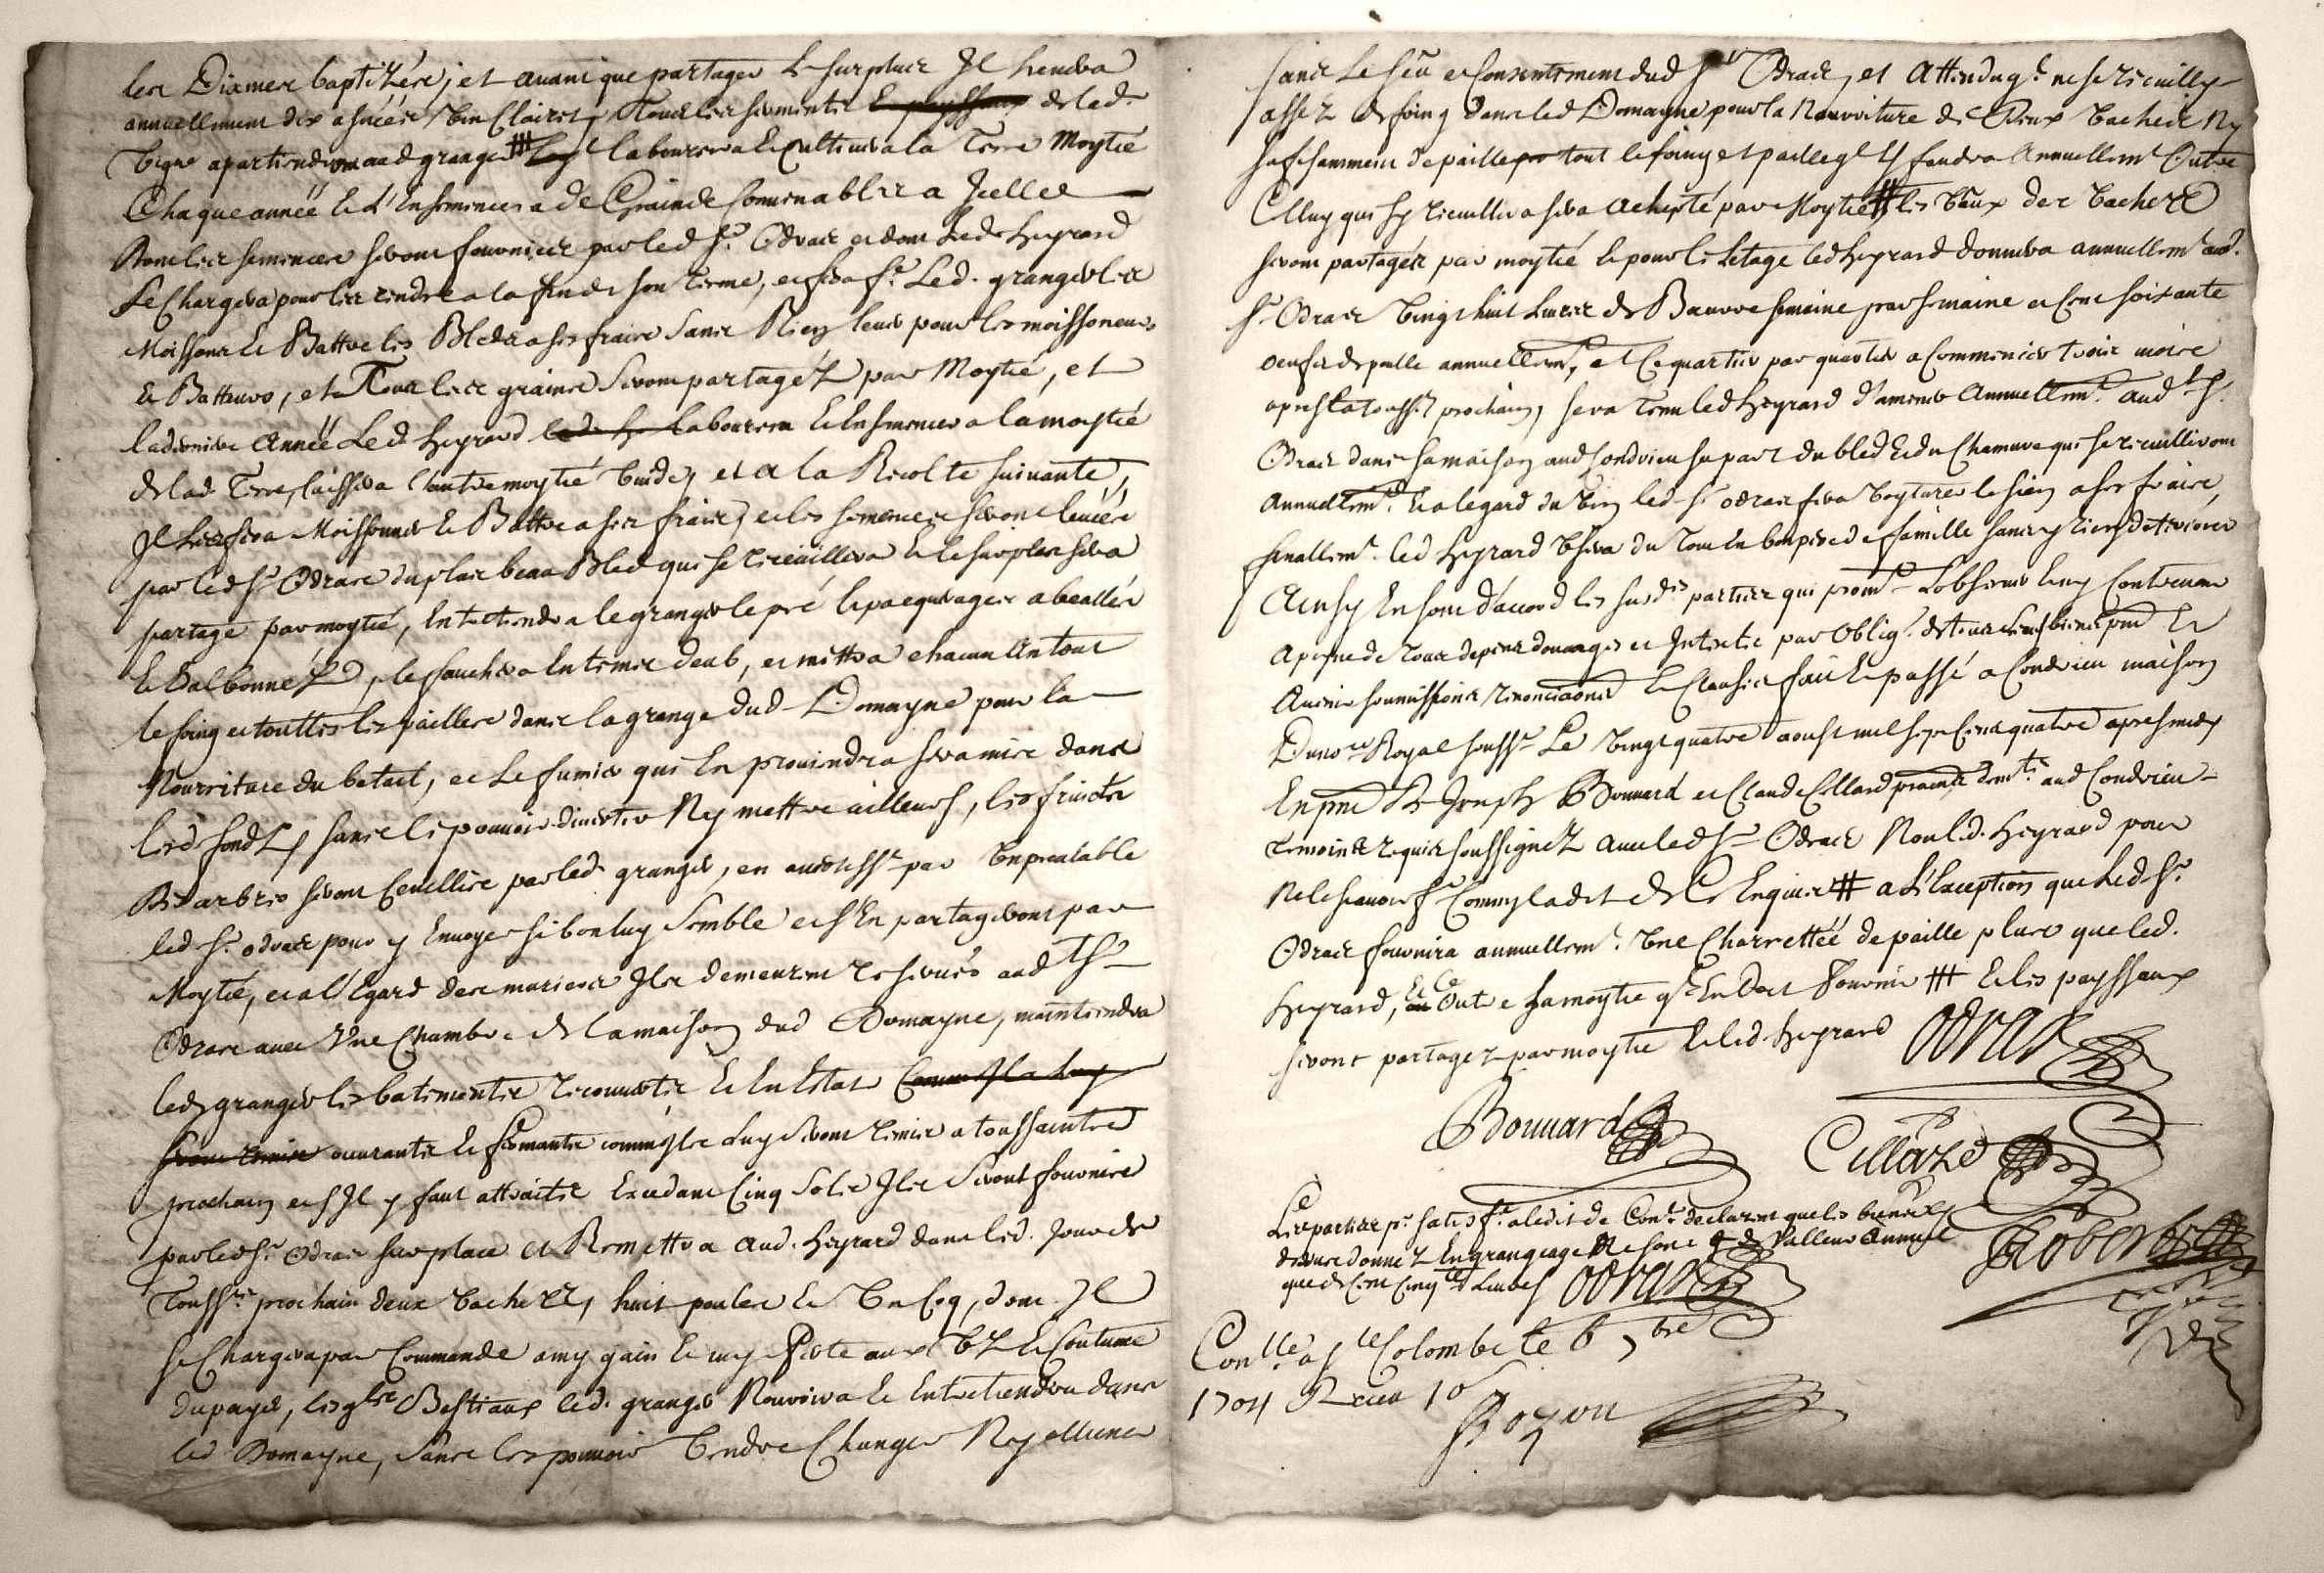 les Dixmes baptizées, et avant que partager le surplus Il prendra
annuellement dix asnéés vin Clairet, Tous les sarmentz et payssaux de lad.
vigne apartiendront aud granger # labourera et Cultivera la Terre Moytié
Chaque année et l'Ensemencera de Grainds Convenables a Jcelle
Dont les semences seront fournies par led Sr. Odrac et dont led Heyrard
Se Chargera pour les rendre a la fin de son terme, et fera fe. Led. granger les
Moissons et Battre les Bleds a ses fraire Sans Rien lever pour les moissoneurs
et Batteurs, et Tous les grains Seront partagéz par Moytié, et
la derniere Année Led Heyrard labourera et Ensemencera la moytié
de lad Terre, laissera l'autre moytié vuide, et a la Recolte suivante,
Jl les fera Moissonner et Battre a ses fraix, et les semences seront levéés
par led Sr Odrac du plus beau Bled qui se recuillira et le surplus sera
partagé par moytié, Entretiendra le granger le pré et paquerages abeallés
et Valbonnéz, le fauchera En temps deub, et mettra chacun An tout
le foing et touttes les pailles dans la grange dud Domayne pour la
Nourriture du betail, et Le fumier qui En proviendra sera mis dans
lesd fondz, sans le pouvoir divertir Ny mettre ailleurs, les fruicts
Des arbres seront Ceuillis par led granger, en avertisst par un prealable
led Sr. odrac pour y Envoyer si bon luy Semble et s'En partageront par
Moytié, et a l'Egard des muriers Jls demeurent reservés aud Sr
Odrac avec Une Chambre de la maison dud Domayne, maintiendra
led granger les batiments recouverts et En Estat Comme Jl a luy
seront remis ouvrants et fermants comme Jls luy seront remis a toussaints
prochain et s'Jl y faut attraits Excedant Cinq Sols Jls Seront fournis
par led Sr. Odrac sur place et Remettra Aud. Heyrard dans led. Jour de
Toussts prochain deux vaches, huit poules et Un Coq, dont Jl
Se Chargera par Commande a my gain et my Perte aux Uz et Coutume
du payis, lesqls Bestiaux led. granger Nourrira et Entretiendra dans
led Domayne, sans les pouvoir Vendre Changer Ny alliener
sans le sceu et Consentement dud Sr Odrac, et Attendu qe ne se recuilly
assez de foing dans led Domayne pour la Nourriture de Deux vaches Ny
sufisamment de paille tout le foing et paille ql faudra Annuellemt Outre
Celluy qui sy recuillira sera achepté par Moytié # les veaux des vaches
seront partagéz par moytié et pour le laitage led Heyrard donnera annuellemt aud.
Sr Odrac vingt huit Livres de Beurre semaine par semaine et Cent soixante
oeufs de pulle annuellemt, et Ce quartier par quartier a Commencer trois mois
apres la Toussts prochain, sera tenu led Heyrard d'amener Annuellemt aud Sr.
Odrac dans sa maison aud Condrieu sa part du bled et du Chanvre qui se recuilliront
Annuellemt. Et a l'egard du vin led Sr odrac fera voyturer le sien a ses fraix,
finallemt. led Heyrard Usera du Tout En bon pere de famille sans y rien deteriorer
Ainsy En sont d'accord les susdes parties qui promt L'observer
a peyne de tous depens domages et Jnterets par Obligon de tous leurs biens
Avec soumissions renonciaons et Clauses fait et passé a Condrieu maison
Du nore Royal soussé Le vingt quatre aoust mil sept cent quatre apres midy
En pnce De Joseph Bouuard et Claude Cillard demts aud Condrieu
temoins requis soussignéz avec led Sr Odrac Non led. Heyrard pour
Ne le sçavoir fe Comm Jl a dit de Ce Enquis # a L'exception que Led Sr.
Odrac fournira annuellemt. Une Charrettéé de paille plus que led.
Heyrard, Et Ce Outre sa moytie ql En Doit Fournir # Et les payssaux
seront partagez par moytie et led Heyrard ODRAC
Bouuard Cillard
Les parties pr satisfe a ledit de Conle declarent que les biens cy
dessus donnez En grangeage Ne sont de Valleur Annuel
que de Cent Cinqte Livres ODRAC Robert
Conlle a Ste Colombe le 6 7bre
1704 Receu 10s